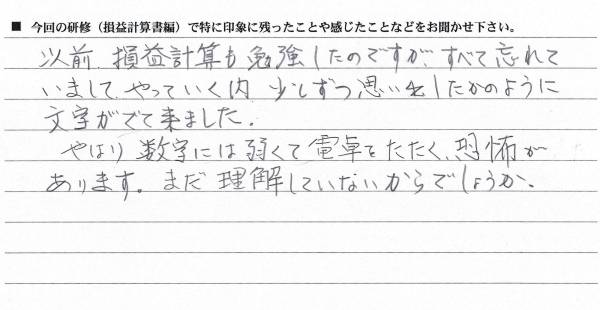 ■ 今回の研修（損益計算書編）で特に印象に残ったことや感じたことなどをお聞かせ下さい。
以前、損益計算も勉強したのですが、すべて忘れて
いまして、やっていく内 少しずつ思い出したかのように
文字がでて来ました。
やはり 数字には弱くて 電卓をたたく、恐怖が
あります。まだ 理解していないからでしょうか、